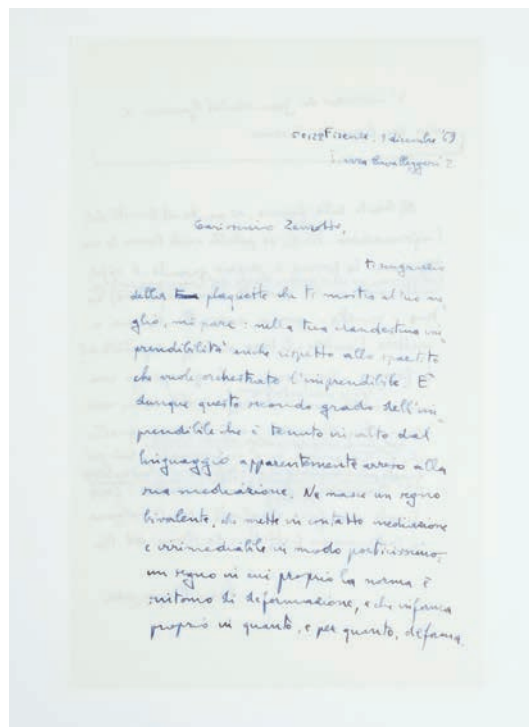 50122 Firenze, 1 dicembre '69
Carissimo Zanzotto,
ti ringrazio
della plaquette che ti mostra al tuo me-
glio, mi pare: nella tua clandestina im-
prendibilità anche rispetto allo spartito
che vuole orchestrato l'imprendibile. È
dunque questo secondo grado dell'im-
prendibile che è tenuto in atto dal
linguaggio apparentemente arreso alla
sua mediazione. Ne nasce un segno
bivalente, che mette in contatto mediazione
e irrimediabile in modo
un segno in cui proprio la norma è
sintomo di deformazione, e che informa
proprio in quanto, e per quanto, defama.